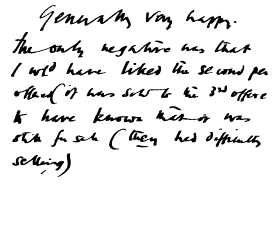 Generally very happy.
The only negative was that
I wld have liked the second per
offered (it was sold to the 3rd offere
to have known that it was
still for sale (they had difficulty
selling)